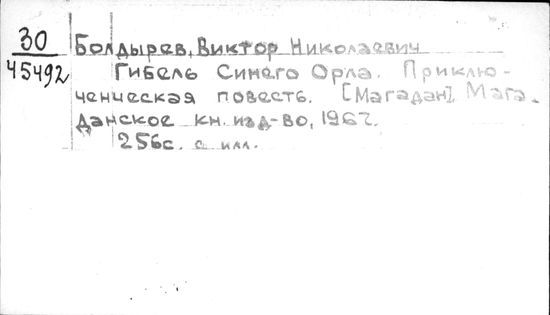 30
45492
Болдырев, Виктор Николаевич
Гибель Синего Орла. Приклю-
ченческая повесть. [Магадан], Мага-
данское кн. изд-во, 1967.
256с. с илл.